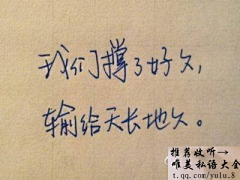 我们撑了好久,
输给天长地久。
推荐收听→
唯美私语大全
t.qq.com/yulu.8